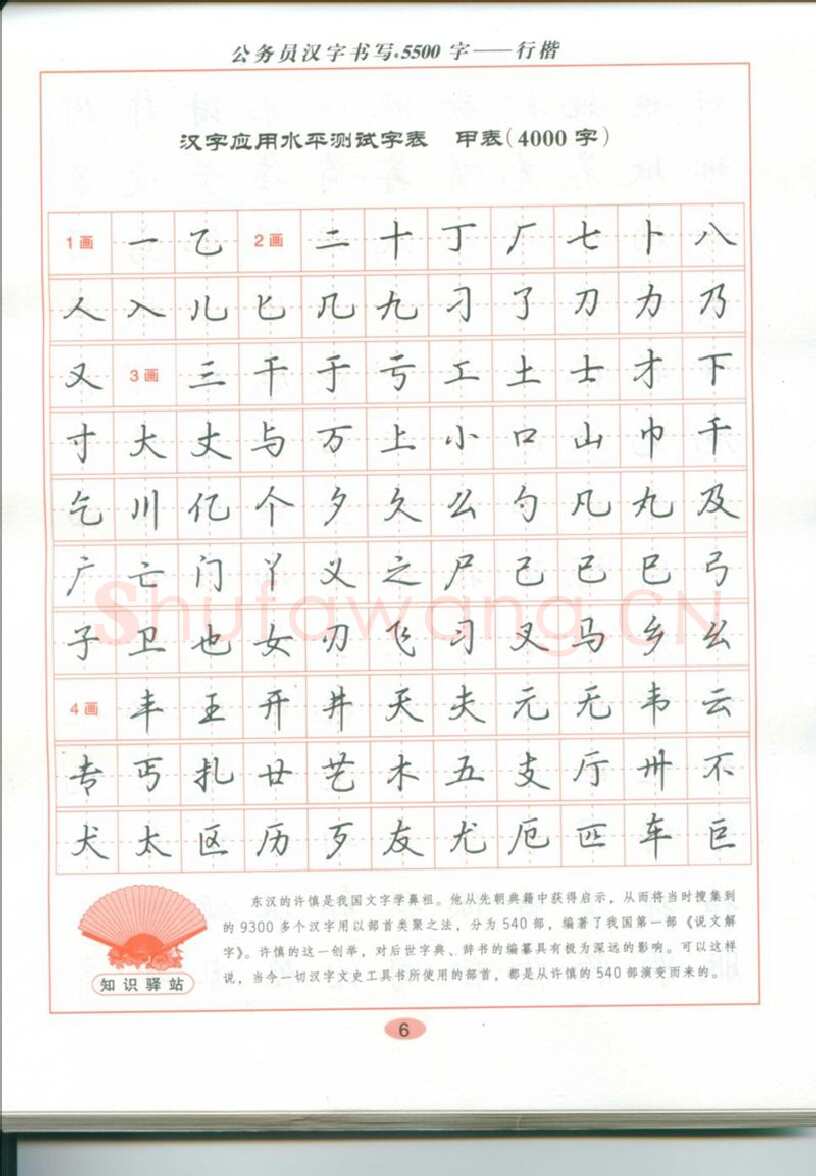 公务员汉字书写·5500字——行楷
汉字应用水平测试字表 甲表(4000字)
1画 一 乙 2画 二 十 丁 厂 七 卜 八
人 入 儿 匕 几 九 刁 了 刀 力 乃
又 3画 三 干 于 亏 工 土 士 才 下
寸 大 丈 与 万 上 小 口 山 巾 千
乞 川 亿 个 夕 久 么 勺 凡 丸 及
广 亡 门 丫 义 之 尸 己 已 巳 弓
子 卫 也 女 刃 飞 习 叉 马 乡 幺
4画 丰 王 开 井 天 夫 元 无 韦 云
专 丐 扎 廿 艺 木 五 支 厅 卅 不
犬 太 区 历 歹 友 尤 厄 匹 车 巨
Shufawang.CN
东汉的许慎是我国文字学鼻祖。他从先朝典籍中获得启示，从而将当时搜集到
的9300多个汉字用以部首类聚之法，分为540部，编著了我国第一部《说文解
字》。许慎的这一创举，对后世字典、辞书的编纂具有极为深远的影响。可以这样
说，当今一切汉字文史工具书所使用的部首，都是从许慎的540部演变而来的。
知识驿站
6